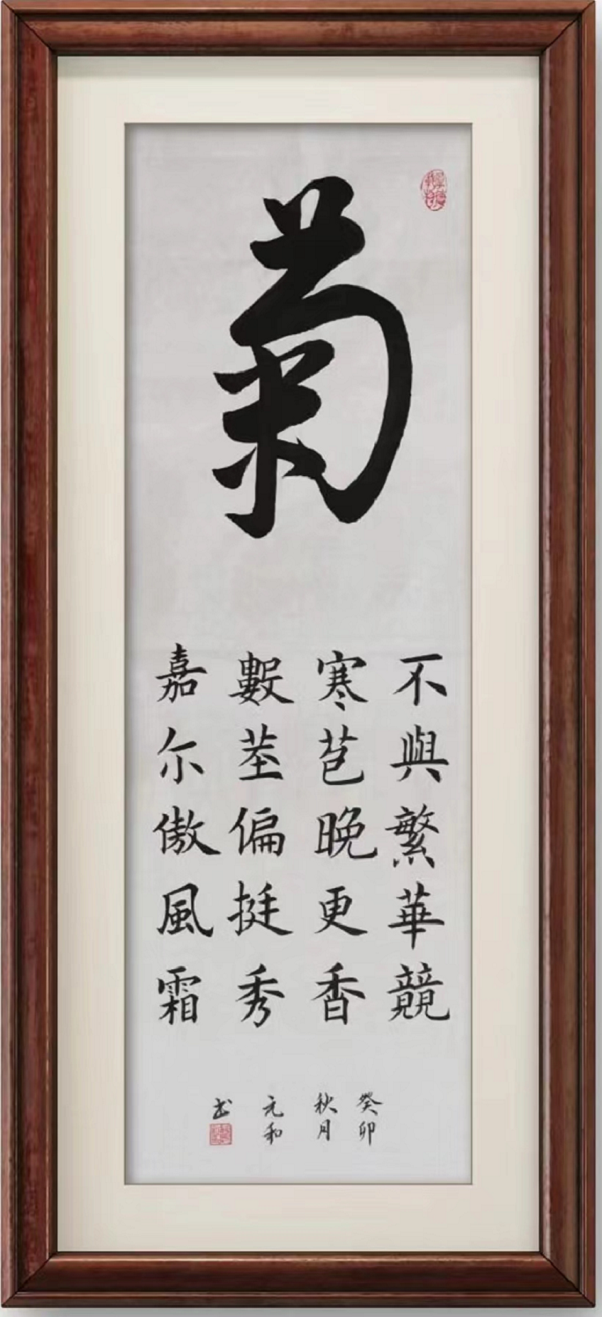 菊
不與繁華競
寒苞晚更香
數莖偏挺秀
嘉尔傲風霜
癸卯
秋月
元和
书